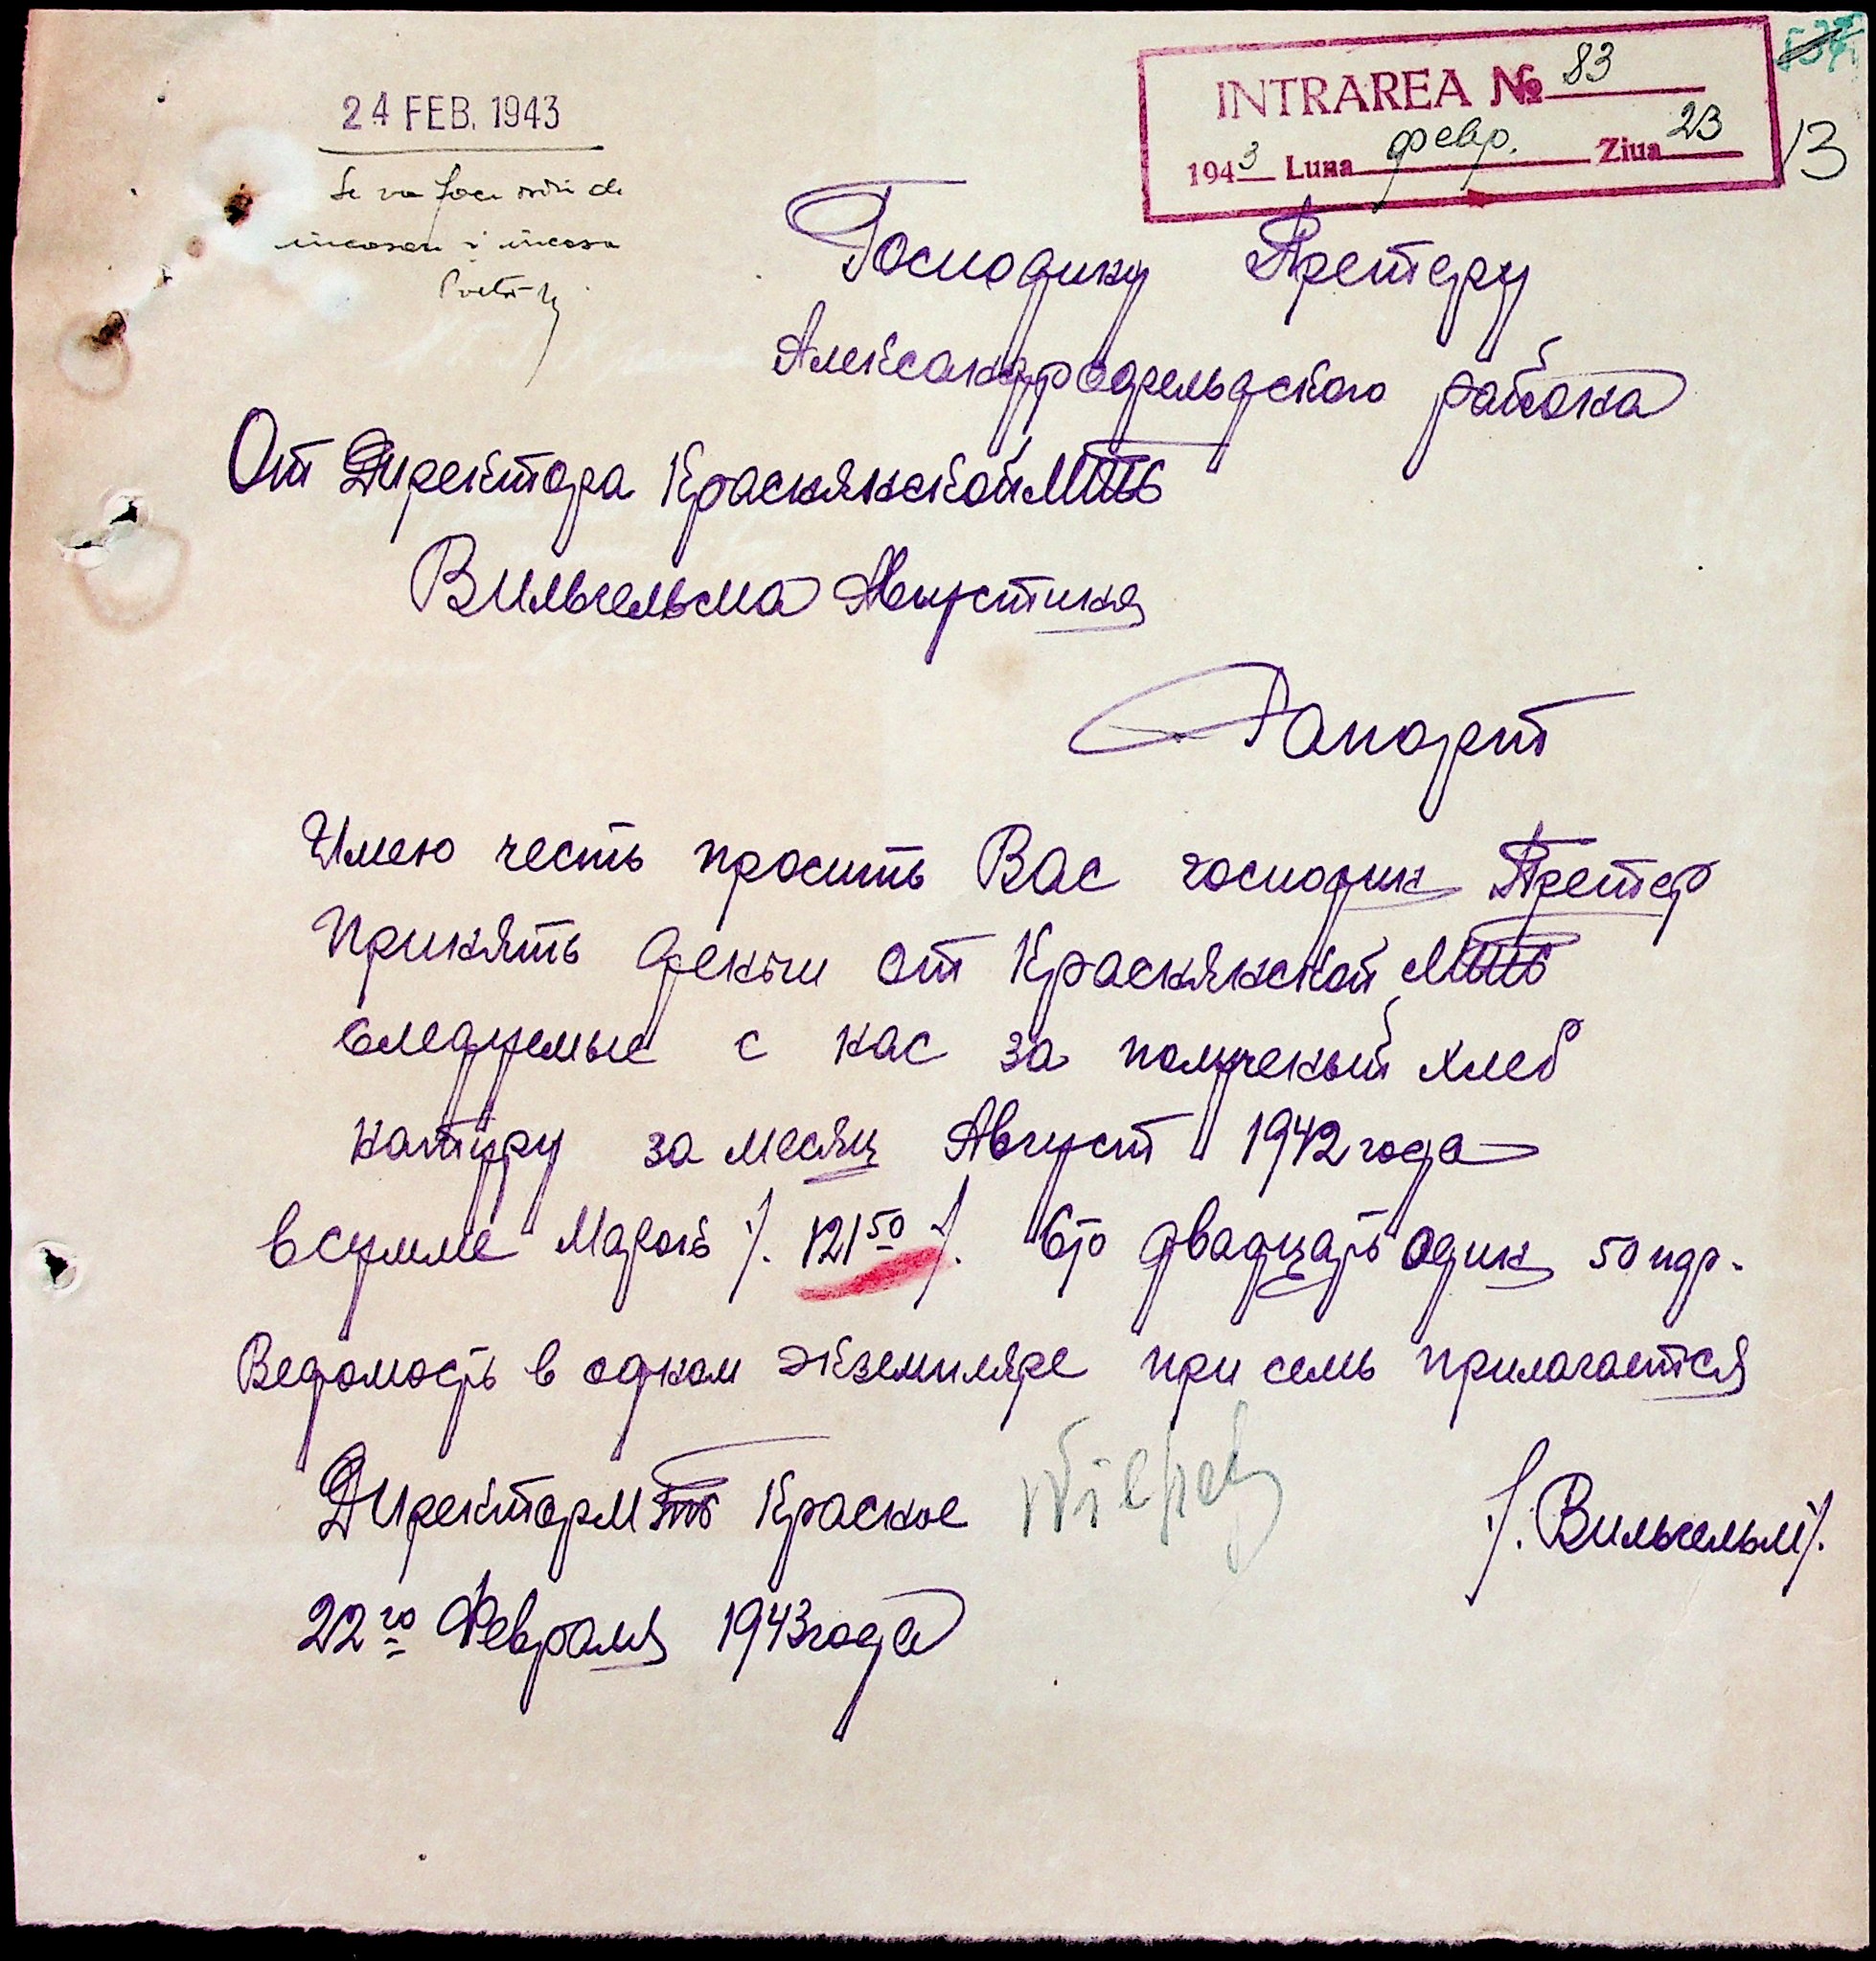 INTRAREA № 83
1943 Luna февр. Ziua 23
13
24 FEB. 1943
Se va face
Господину Претеру
Александрфельдского района
От Директора Краснянской МТС
Вильгельма Августина
Рапорт
Имею честь просить Вас господин Претер
Принять деньги от Краснянской МТС
Следуемые с нас за полученый хлеб
натуру за месяц Август 1942 года
в сумме Марок /. 121 50 /. Сто двадцать один 50 пф.
Ведомость в одном экземпляре при семь прилагается
Директор МТС Красное /. Вильгельм /.
22го Февраля 1943 года